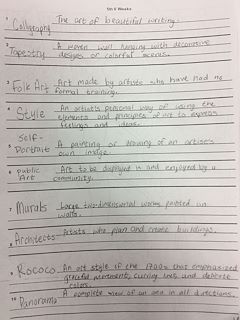 5th 6 Weeks
1 Calligraphy The art of beautiful writing.
2 Tapestry A woven wall hanging with decorative
designs or colorful scenes.
3 Folk Art Art made by artists who have had no
formal training.
4 Style An artist's personal way of using the
elements and principles of art to express
feelings and ideas.
5 Self-
Portrait A painting or drawing of an artist's
own image
6 Public
Art Art to be displayed in and enjoyed by a
community.
7 Murals Large two-dimensional works painted on
walls.
8 Architects Artists who plan and create buildings.
9 Rococo An art style of the 1700s that emphasized
graceful movement, curving lines, and delicate
colors.
10 Panorama A complete view of an area in all directions.